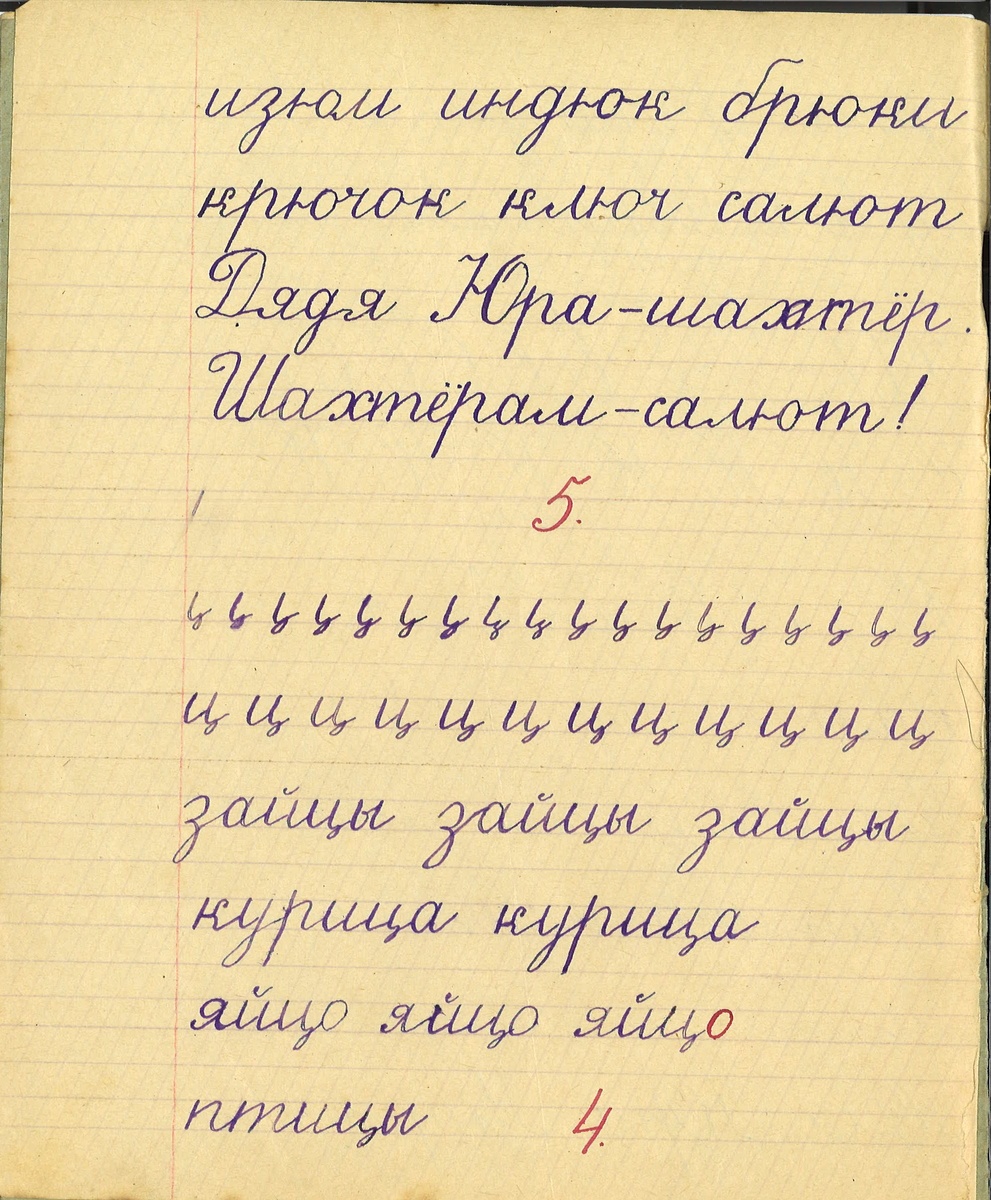 изюм индюк брюки
крючок ключ салют
Дядя Юра-шахтёр.
Шахтёрам-салют!
5.
ц ц ц ц ц ц ц ц ц ц ц ц
зайцы зайцы зайцы
курица курица
яйцо яйцо яйцо
птицы 4.